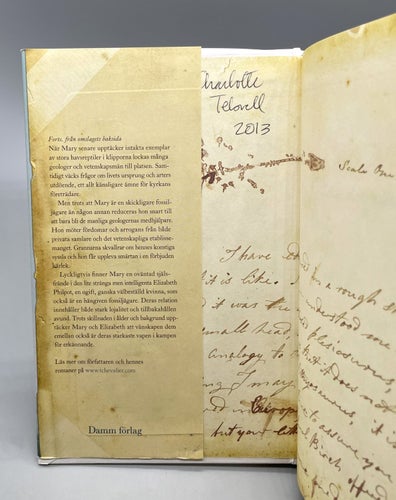 Forts. från omslagets baksida
När Mary senare upptäcker intakta exemplar
av stora havsreptiler i klipporna lockas många
geologer och vetenskapsmän till platsen. Sam-
tidigt väcks frågor om livets ursprung och arters
utdöende, ett allt känsligare ämne för kyrkans
företrädare.
Men trots att Mary är en skickligare fossil-
jägare än någon annan reduceras hon snart till
att bara bli de manliga geologernas medhjälpare.
Hon möter fördomar och arrogans från både
privata samlare och det vetenskapliga etablisse-
manget. Grannarna skvallrar om hennes konstiga
syssla och hon får uppleva smärtan i en förbjuden
kärlek.
Lyckligtvis finner Mary en oväntad själs-
frände i den lite stränga men intelligenta Elizabeth
Philpot, en ogift, ganska välbeställd kvinna, som
också är en hängiven fossiljägare. Deras relation
innehåller både stark lojalitet och tillbakahållen
avund. Trots skillnaden i ålder och bakgrund upp-
täcker Mary och Elizabeth att vänskapen dem
emellan också är deras starkaste vapen i kampen
för erkännande.
Läs mer om författaren och hennes
romaner på www.tchevalier.com
Damm förlag
Charlotte
2013
Scale One
I have
it is like.
it was the
small head,
analogy to
I may
but you like
for a rough
understood
plesiosaurus,
but it does not
assure you